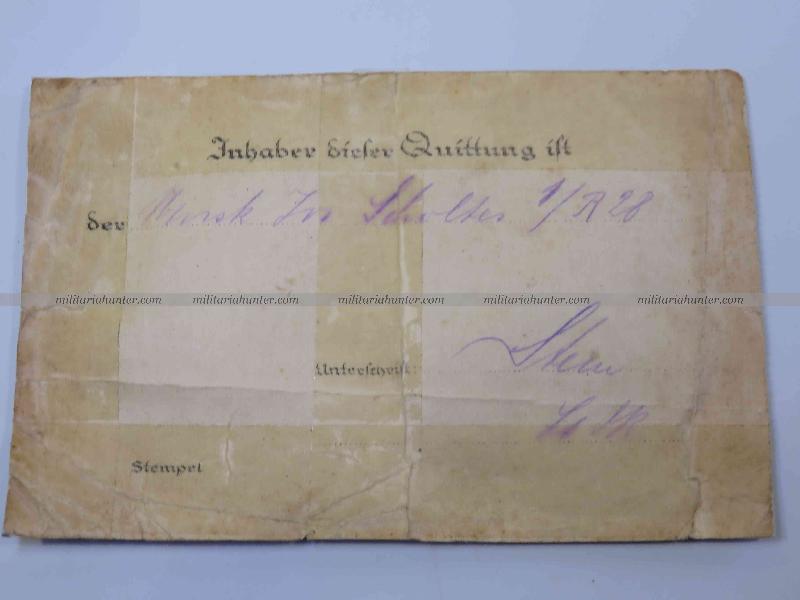 Inhaber dieser Quittung ist
der Musk Jos Scholtes 1/R 28
militariahunter.com militariahunter.com militariahunter.com militariahunter.com militariahunter.com
Unterschrift:
Stempel